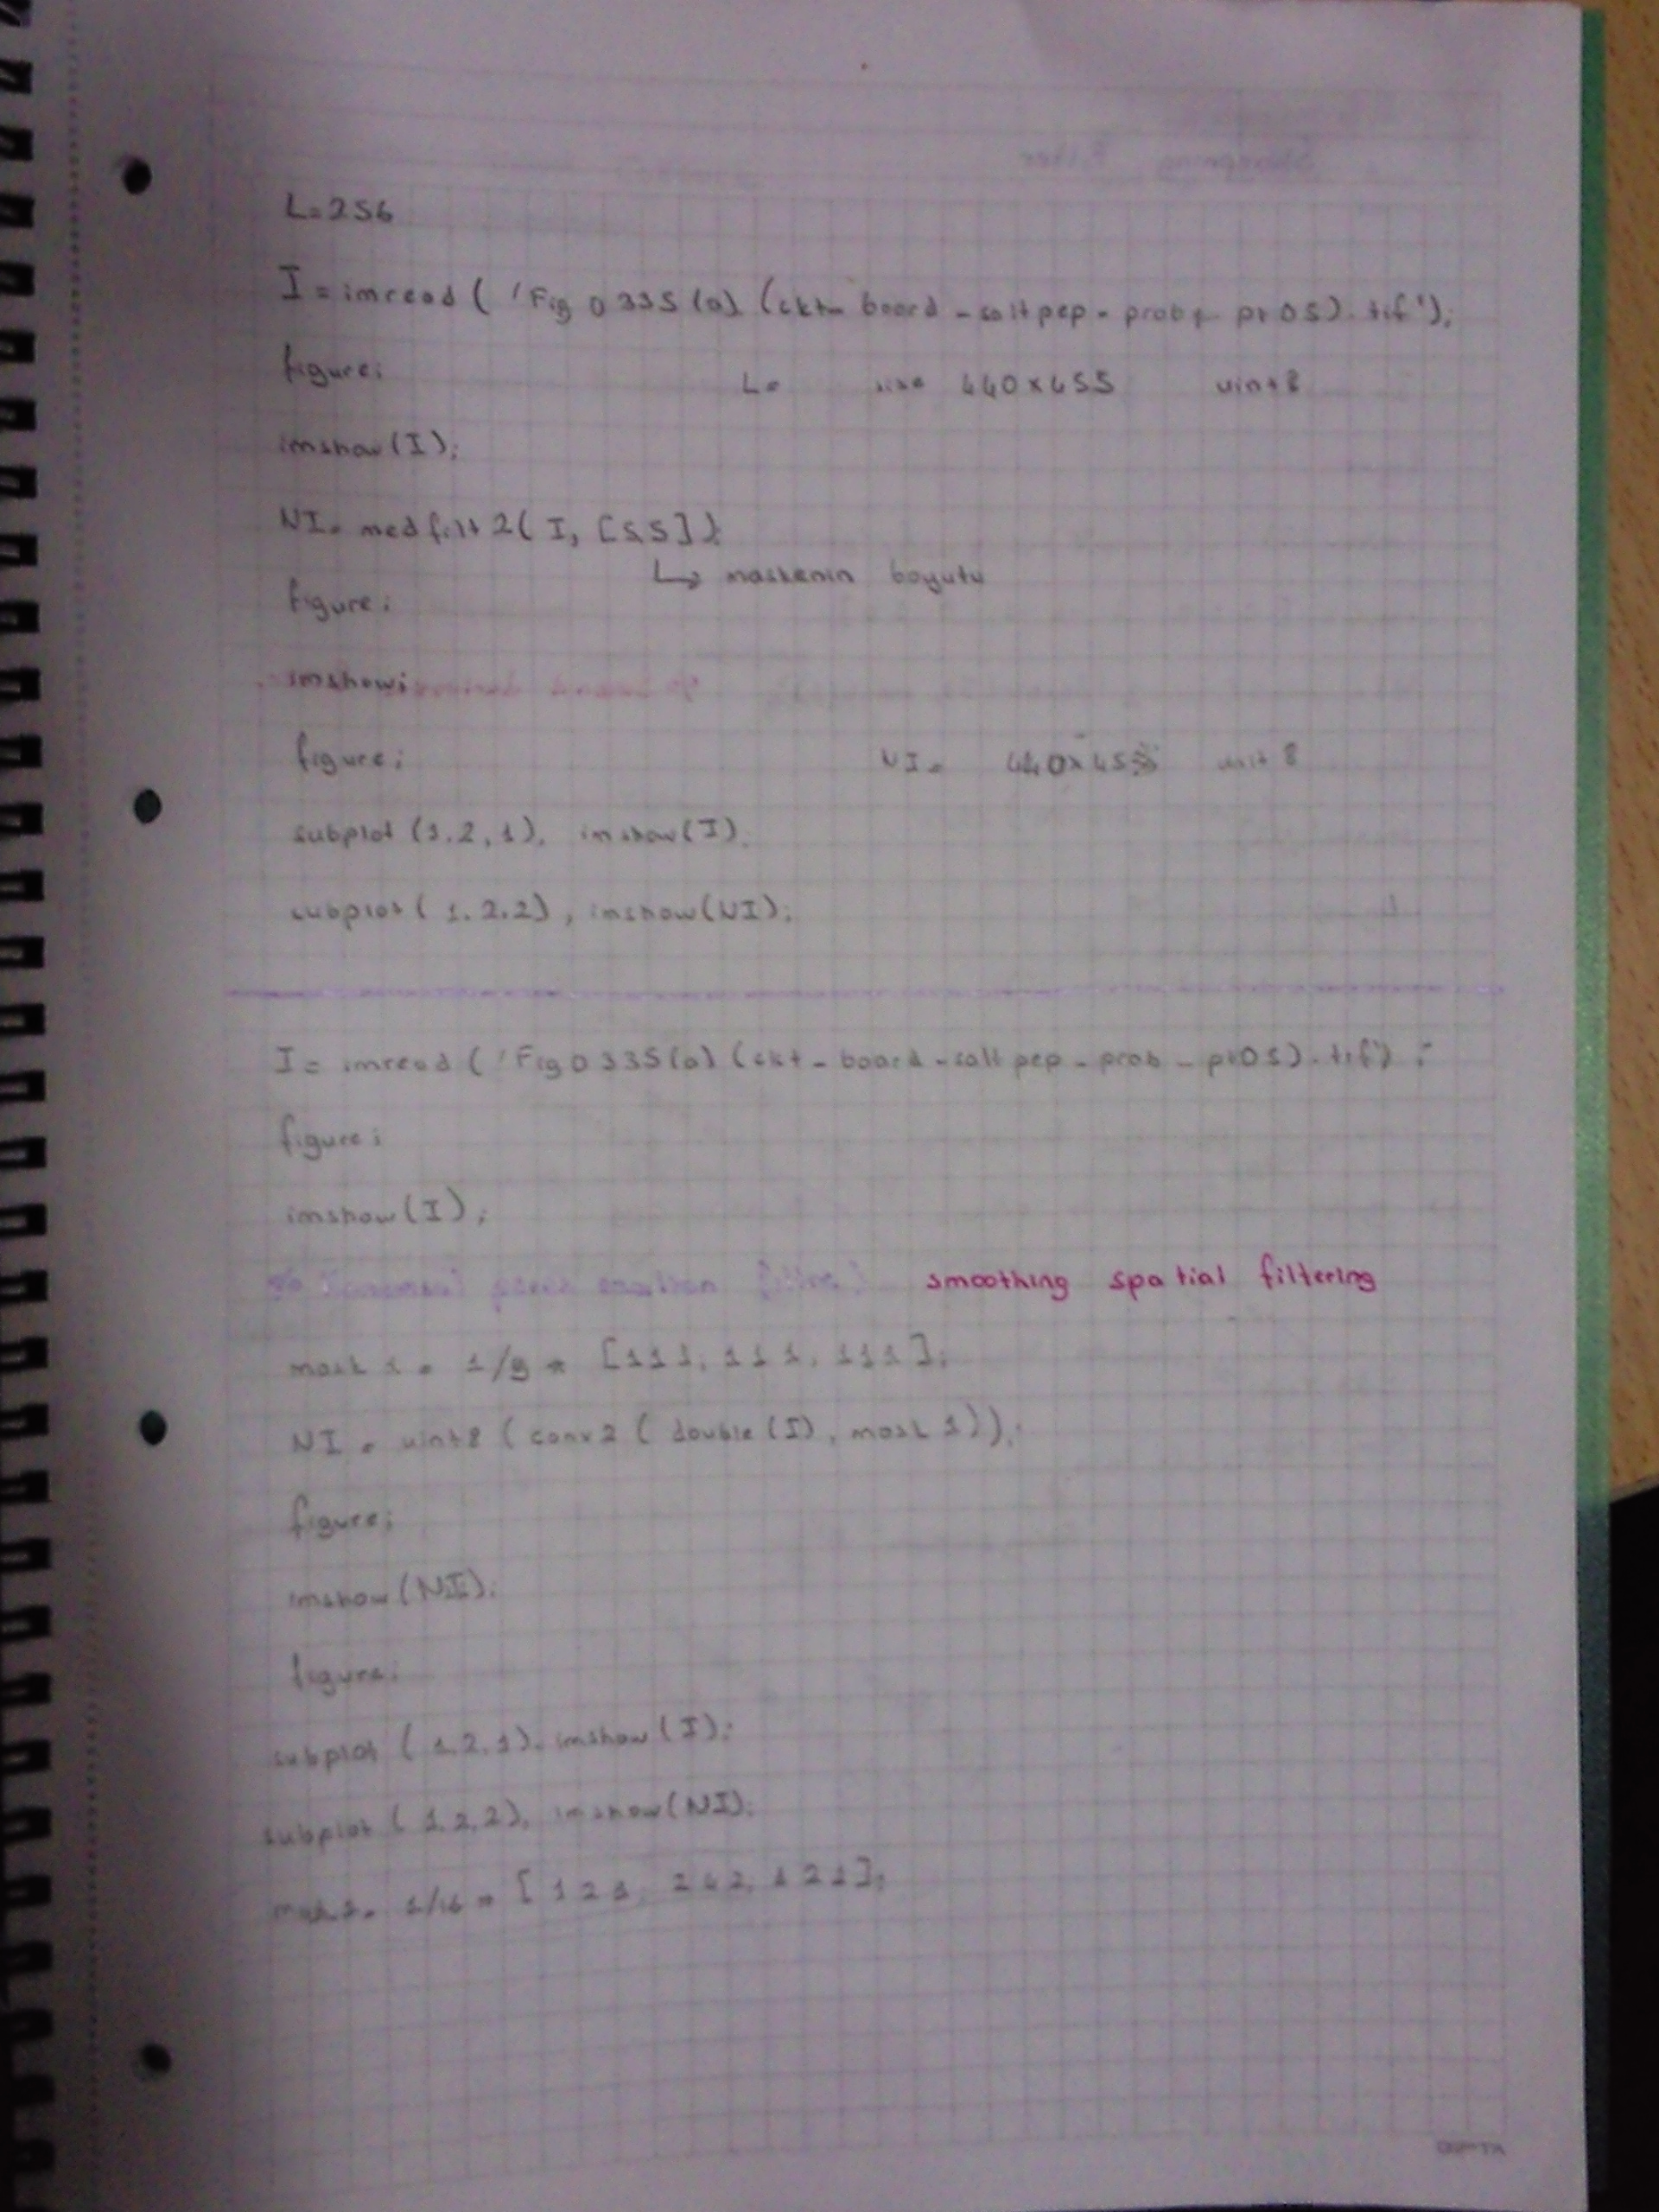 L=256
I = imread ( 'Fig 0335(a) (ckt- board - saltpep - prob + pt 05). tif ');
figure;
L= size 440x455 uint8
imshow(I);
NI = medfilt2( I, [5,5]);
↳ maskenin boyutu
figure;
imshow;
figure;
NI = 440x455 uint 8
subplot (1.2,1), imshow(I).
subplot ( 1.2.2), imshow(NI);
I = imread ( 'Fig 0335(a) (ckt - board - salt pep - prob - pt05). tif') ;
figure;
imshow(I);
smoothing spatial filtering
mask 1 = 1/9 * [111, 111, 111];
NI = uint8 ( conv2 ( double (I), mask 1));
figure;
imshow (NI);
figure;
subplot ( 1.2.1), imshow (I);
subplot ( 1.2.2), imshow(NI);
1/16 * [ 121, 242, 121];